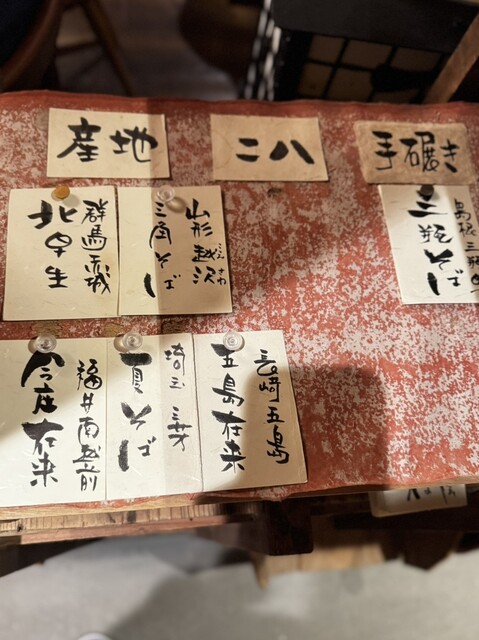 産地
二八
手碾き
群馬赤城
北早生
山形越沢
こえ さわ
三角そば
島根三瓶
三瓶そば
福井南越前
今庄在来
埼玉三芳
夏そば
長崎五島
五島在来